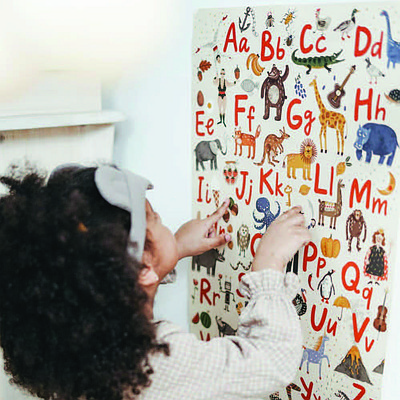 Aa Bb Cc Dd
Ee Ff Gg Hh
Ii Jj Kk Ll Mm
Pp Qq
Rr Uu Vv